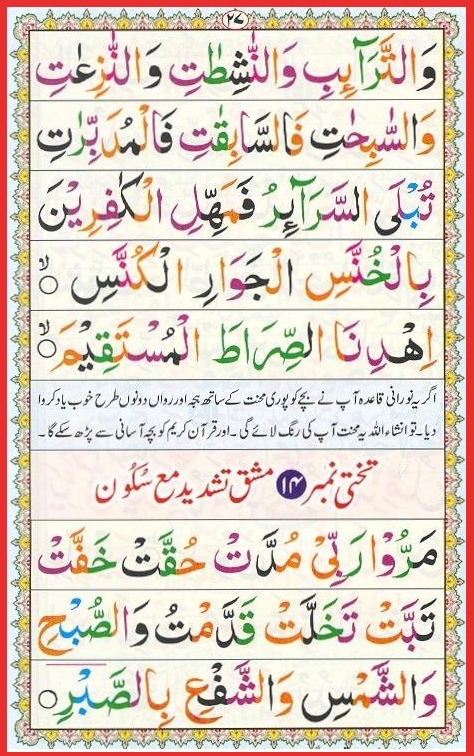 ٢٧
وَالتَّرَآئِبِ وَالنّٰشِطٰتِ وَالنّٰزِعٰتِ
وَالسّٰبِحٰتِ فَالسَّابِقٰتِ فَالْمُدَبِّرٰتِ
تُبْلَى السَّرَآئِرُ فَمَهِّلِ الْكٰفِرِيْنَ
بِالْخُنَّسِ الْجَوَارِ الْكُنَّسِ ۙ
اِهْدِنَا الصِّرَاطَ الْمُسْتَقِيْمَ ۙ
اگر یہ نورانی قاعدہ آپ نے بچے کو پوری محنت کے ساتھ ہجہ اور رواں دونوں طرح خوب یاد کروا
دیا۔ تو انشاء اللہ یہ محنت آپ کی رنگ لائے گی۔ اور قرآن کریم کو بچہ آسانی سے پڑھ سکے گا۔
تختی نمبر ۱۴ مشق تشدید مع سُکُون
مَرُّوْا رَبِّيْ مُدَّتْ حُقَّتْ خَفَّتْ
تَبَّتْ تَخَلَّتْ قَدَّمْتُ وَالصُّبْحِ
وَالشَّمْسِ وَالشَّفْعِ بِالصَّبْرِ ○